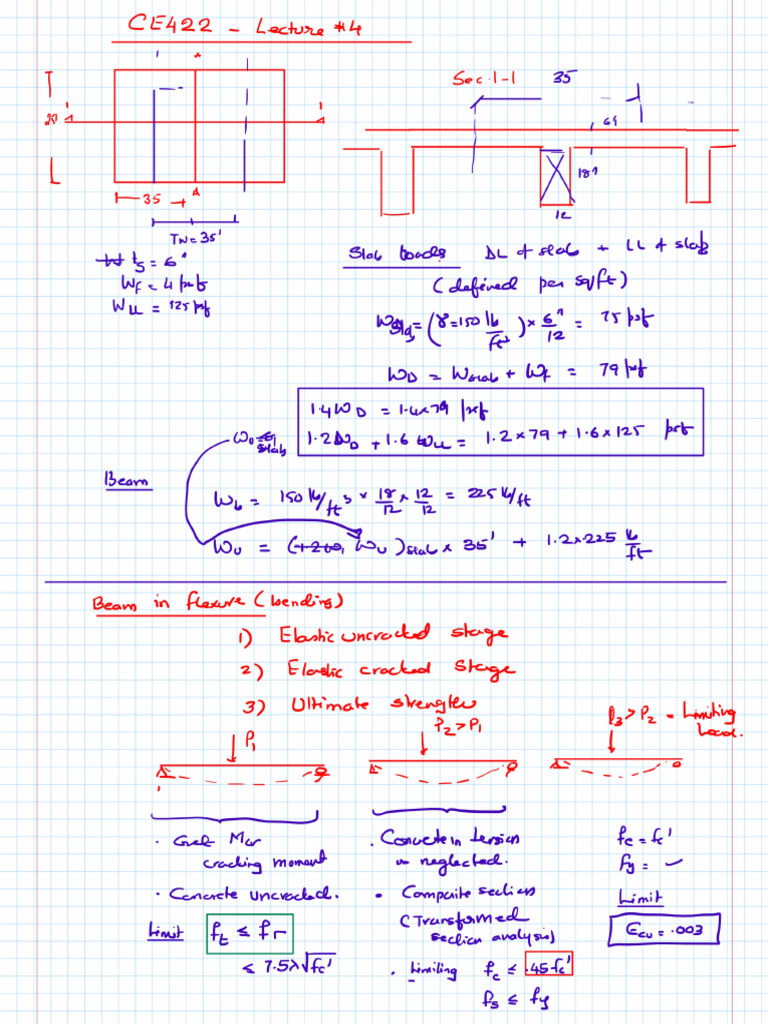 CE422 - Lecture #4
Sec. 1-1
35
6"
18"
12
1
1
1
20'
35
Tw = 35'
ts = 6"
WF = 4 psf
WLL = 125 psf
Slab Loads DL of slab + LL of slab
(defined per sqft)
Wslab = (γ=150 lb/ft³) × 6"/12 = 75 psf
WD = Wslab + WF = 79 psf
1.4WD = 1.4×79 psf
1.2WD + 1.6 WLL = 1.2×79 + 1.6×125 psf
slab
Beam
Wb = 150 lb/ft³ × 18/12 × 12/12 = 225 lb/ft
WU = (WU)slab × 35' + 1.2×225 lb/ft
Beam in flexure (bending)
1) Elastic uncracked stage
2) Elastic cracked stage
3) Ultimate strength
P1
P2 > P1
P3 > P2 = Limiting Load.
. Mcr
cracking moment
. Concrete uncracked.
Limit ft ≤ fr
≤ 7.5λ√fc'
. Concrete in tension
is neglected.
. Composite section
(Transformed
section analysis)
. Limiting fc ≤ .45fc'
fs ≤ fy
fc = fc'
fy =
Limit
Ecu = .003